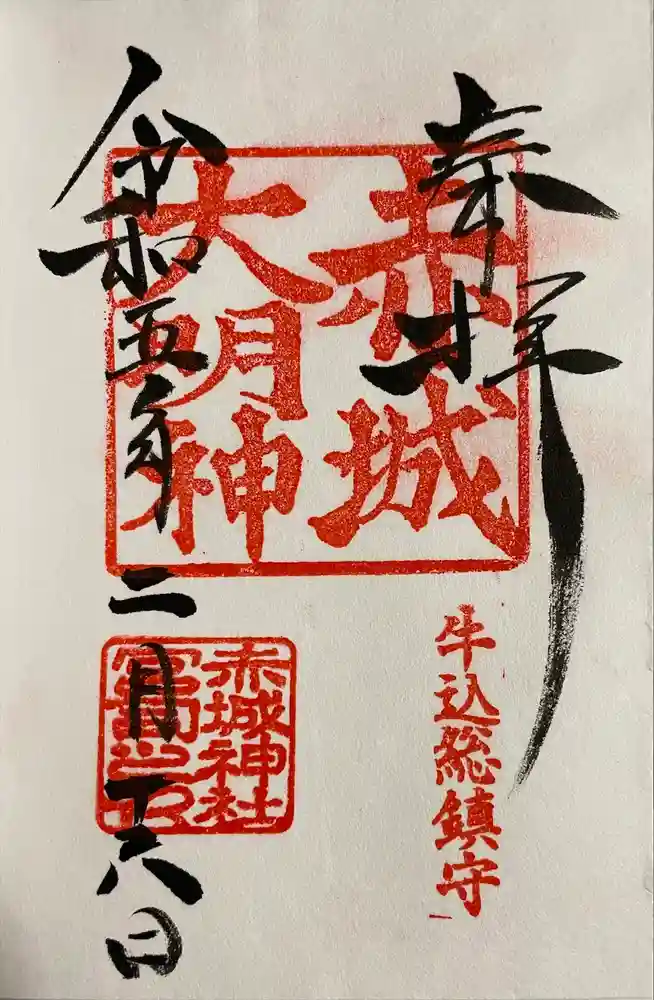 奉拝
赤城
大明神
牛込総鎮守
令和五年二月十六日
赤城神社
宮司之印